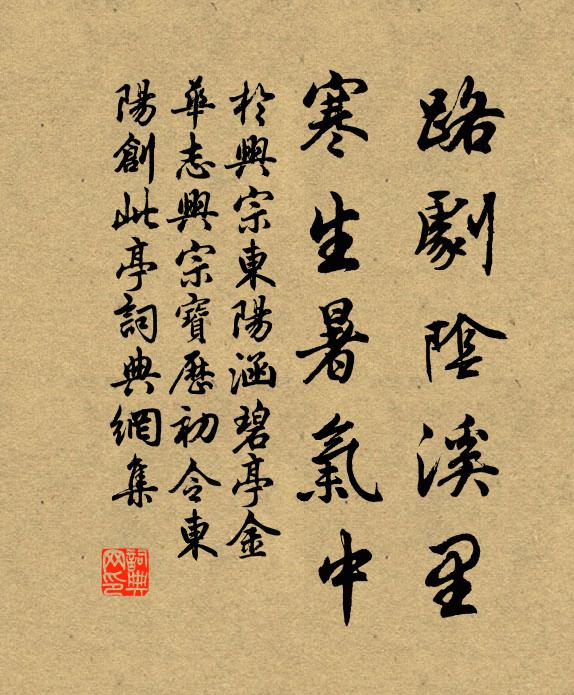 路劇陰溪里
寒生暑氣中
於興宗東陽涵碧亭金
華志興宗寶歷初令東
陽創此亭詞典網集
詞典网印